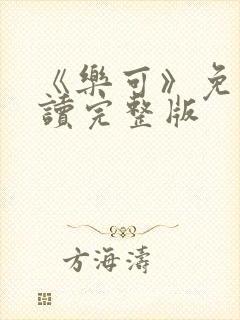 《樂可》免
讀完整版
方海濤